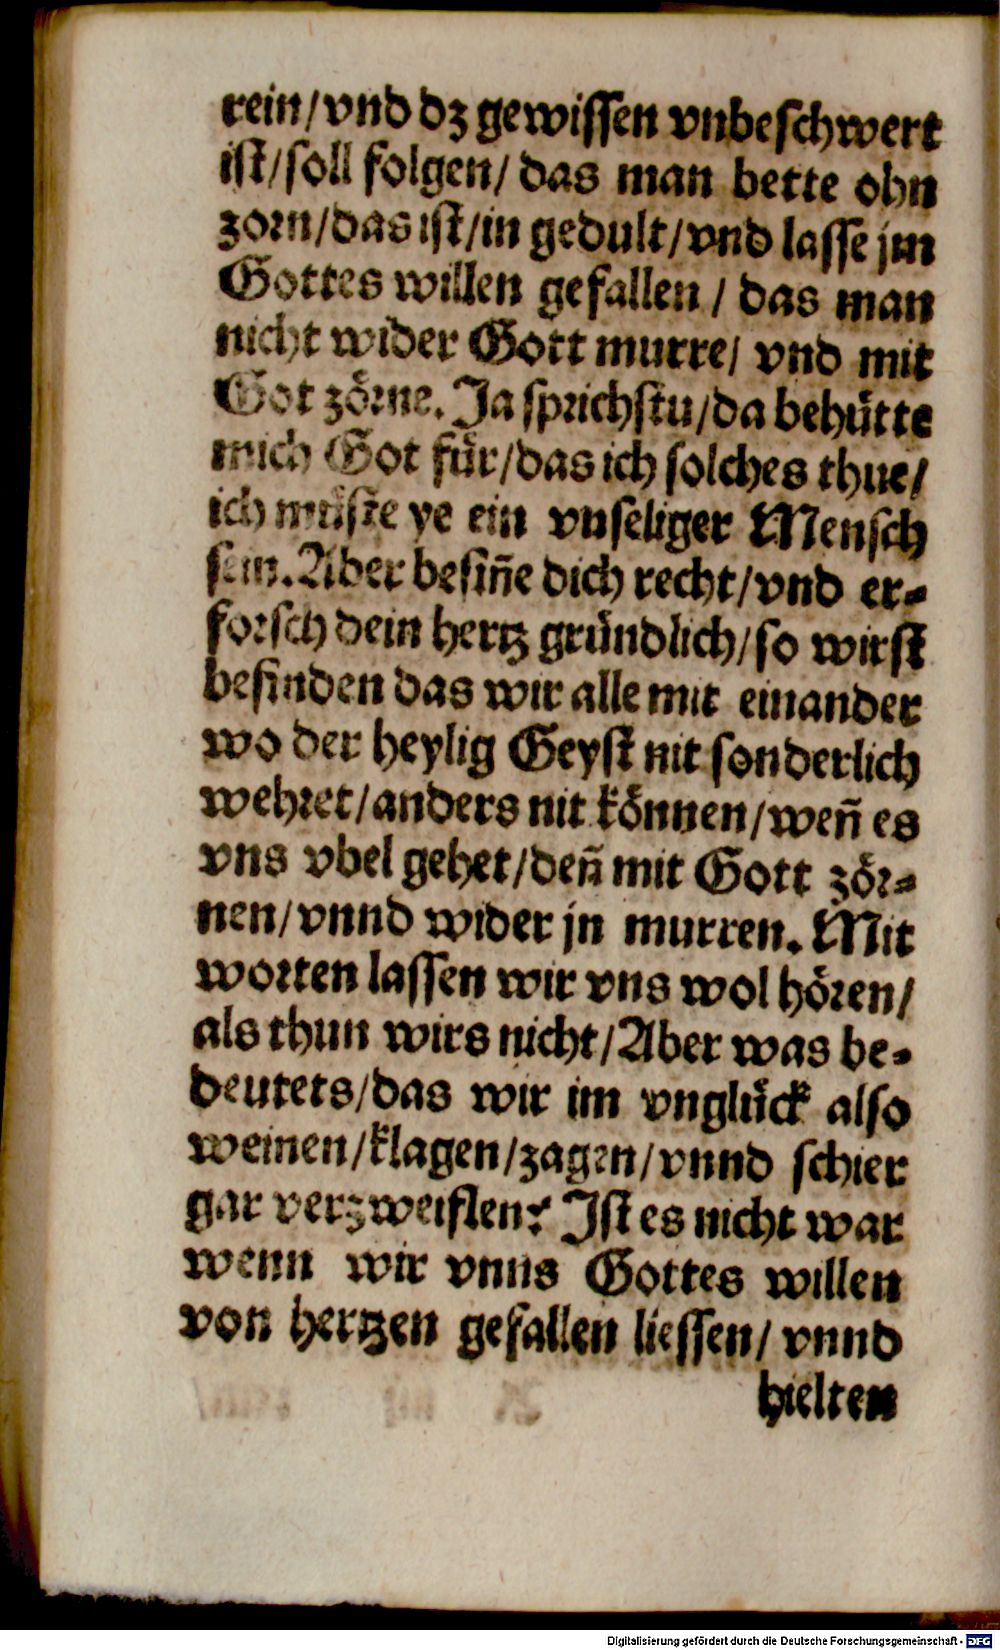 rein/vnd dz gewissen vnbeschwert
ist/soll folgen/ das man bette ohn
zorn/das ist/in gedult/vnd lasse jm
Gottes willen gefallen / das man
nicht wider Gott murre/ vnd mit
Got zörne. Ja sprichstu/da behütte
mich Got für/das ich solches thue/
ich müste ye ein vnseliger Mensch
sein. Aber besiñe dich recht/vnd er-
forsch dein hertz gründlich/so wirst
befinden das wir alle mit einander
wo der heylig Geyst nit sonderlich
wehret/anders nit können/weñ es
vns vbel gehet/deñ mit Gott zör-
nen/vnnd wider jn murren. Mit
worten lassen wir vns wol hören/
als thun wirs nicht/Aber was be-
deutets/das wir im vnglück also
weinen/klagen/zagen/vnnd schier
gar verzweiflen? Ist es nicht war
wenn wir vnns Gottes willen
von hertzen gefallen liessen/ vnnd
hielten
Digitalisierung gefördert durch die Deutsche Forschungsgemeinschaft - DFG